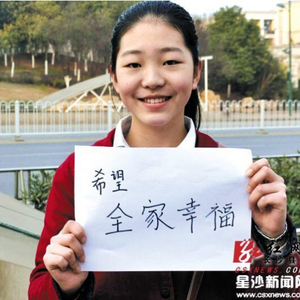 希望
全家幸福
CSXNEWS.COM
星沙新闻网
www.csxnews.com